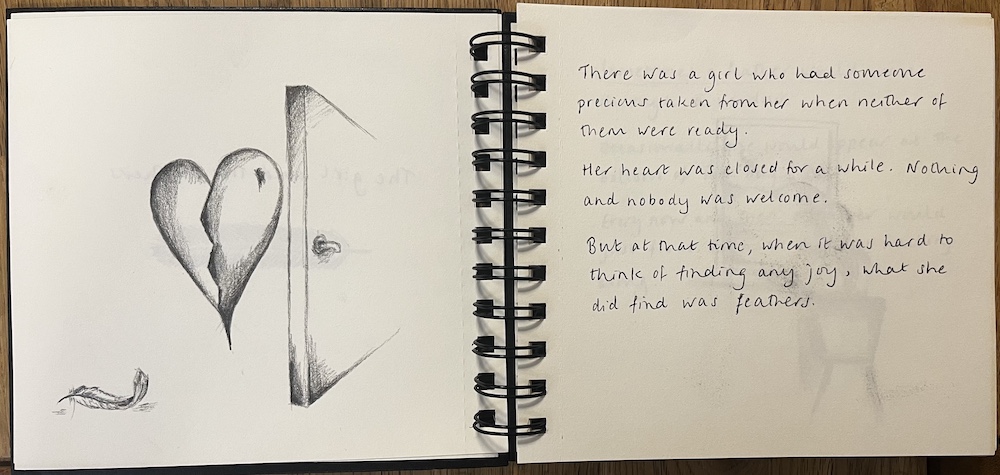 There was a girl who had someone
precious taken from her when neither of
them were ready.
Her heart was closed for a while. Nothing
and nobody was welcome.
But at that time, when it was hard to
think of finding any joy, what she
did find was feathers.